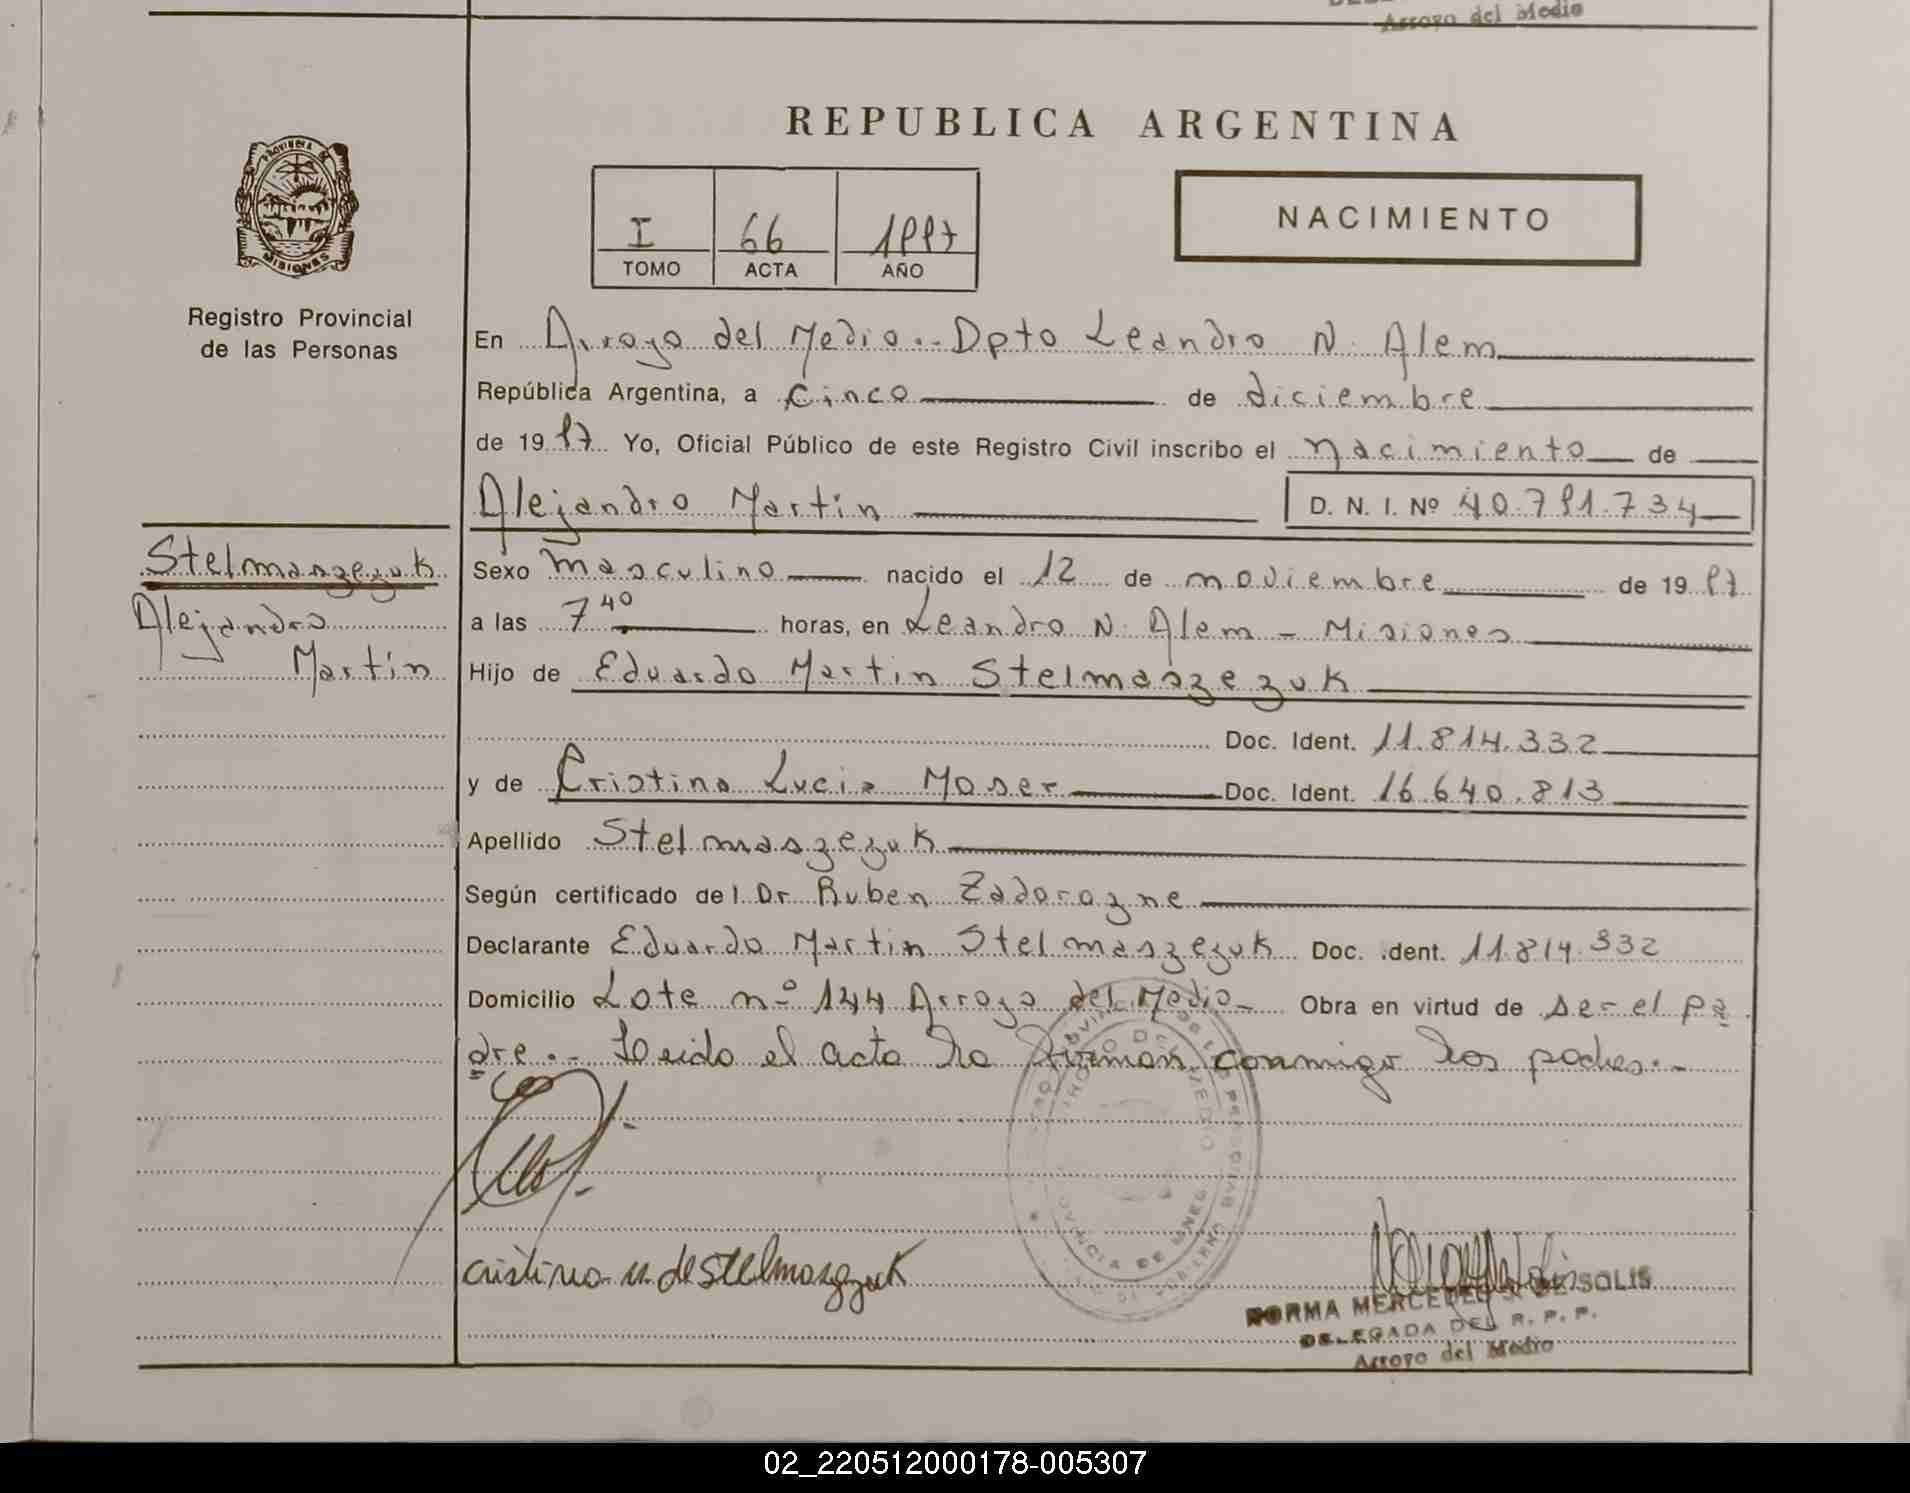 Arroyo del Medio
REPUBLICA ARGENTINA
PROVINCIA DE
MISIONES
Registro Provincial
de las Personas
I 66 1997
TOMO ACTA AÑO
NACIMIENTO
En Arroyo del Medio.- Dpto Leandro N. Alem
República Argentina, a cinco de diciembre
de 19 97 Yo, Oficial Público de este Registro Civil inscribo el nacimiento de
Alejandro Martin D. N. I. Nº 40.791.734
Stelmaszezuk
Alejandro
Martin
Sexo masculino nacido el 12 de noviembre de 19 97
a las 7 40 horas, en Leandro N. Alem - Misiones
Hijo de Eduardo Martin Stelmaszezuk
Doc. Ident. 11.814.332
y de Cristina Lucia Moser Doc. Ident. 16.640.813
Apellido Stelmaszezuk
Según certificado del Dr Ruben Zadorozne
Declarante Eduardo Martin Stelmaszezuk Doc. Ident. 11.814.332
Domicilio Lote nº 144 Arroyo del Medio- Obra en virtud de ser el pa
dre.- Leido el acta la firman conmigo los padres.-
cristina m. de Stelmaszezuk
NORMA MERCEDES DE SOLIS
DELEGADA DEL R. P. P.
Arroyo del Medio
02_220512000178-005307